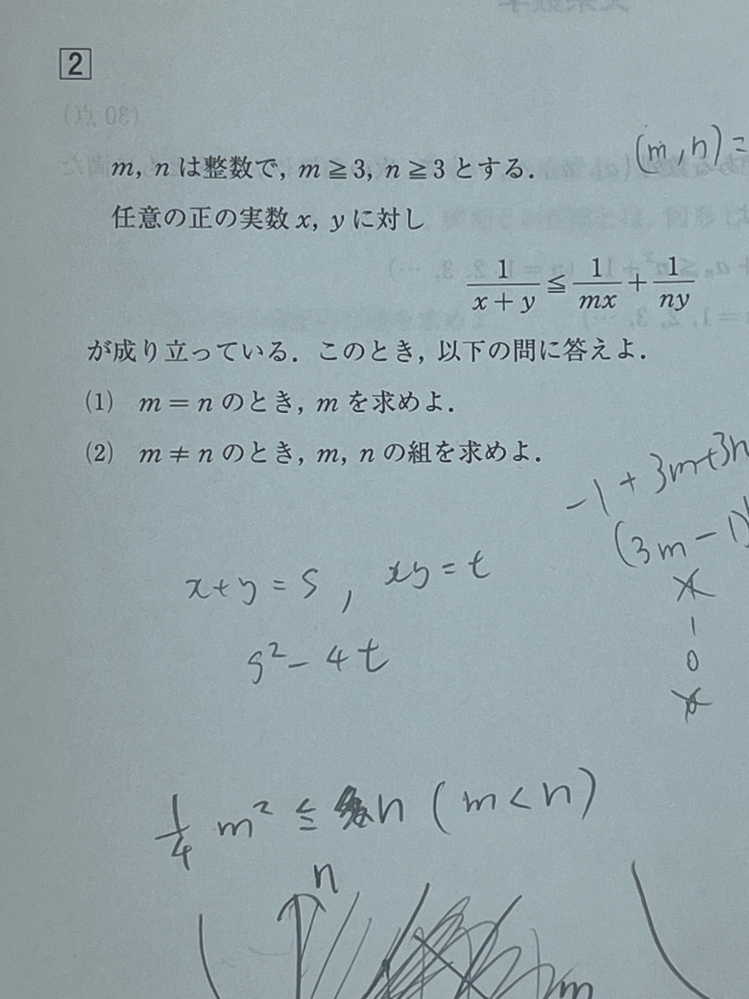 2
(30点)
m, nは整数で, m≧3, n≧3とする.
(m, n) =
任意の正の実数x, yに対し
1/(x+y) ≦ 1/(mx) + 1/(ny)
が成り立っている. このとき, 以下の問に答えよ.
(1) m = nのとき, mを求めよ.
(2) m ≠ nのとき, m, nの組を求めよ.
-1 + 3m+3n
(3m-1)
x+y = s, xy = t
1
s²-4t
0
1/4 m² ≦ n (m<n)
n
m